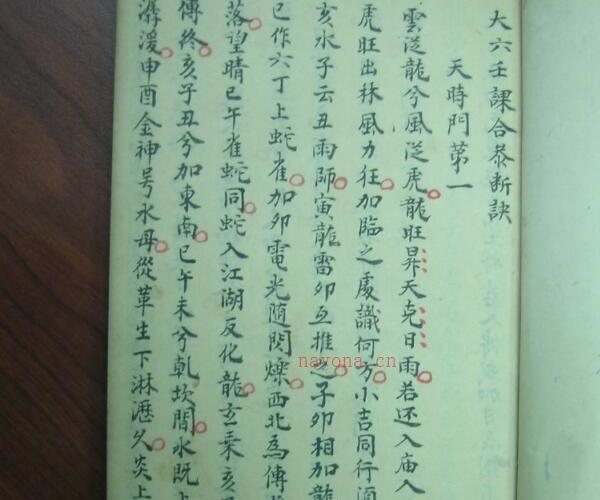 大六壬課合叅断訣
天時門第一
雲從龍兮風從虎龍旺昇天克日雨若还入庙入
虎旺出林風力狂加臨之處識何方小吉同行酒
亥水子云丑雨師寅龍雷卯互推之子卯相加龍
巳作六丁上蛇雀加卯電光随閃爍西北為傳
落望晴巳午雀蛇同蛇入江湖反化龍玄乘亥
傳終亥子丑兮加東南巳午未兮乹坎間水既上
潺湲申酉金神号水母從革生下淋瀝久炎上
nayona.cn